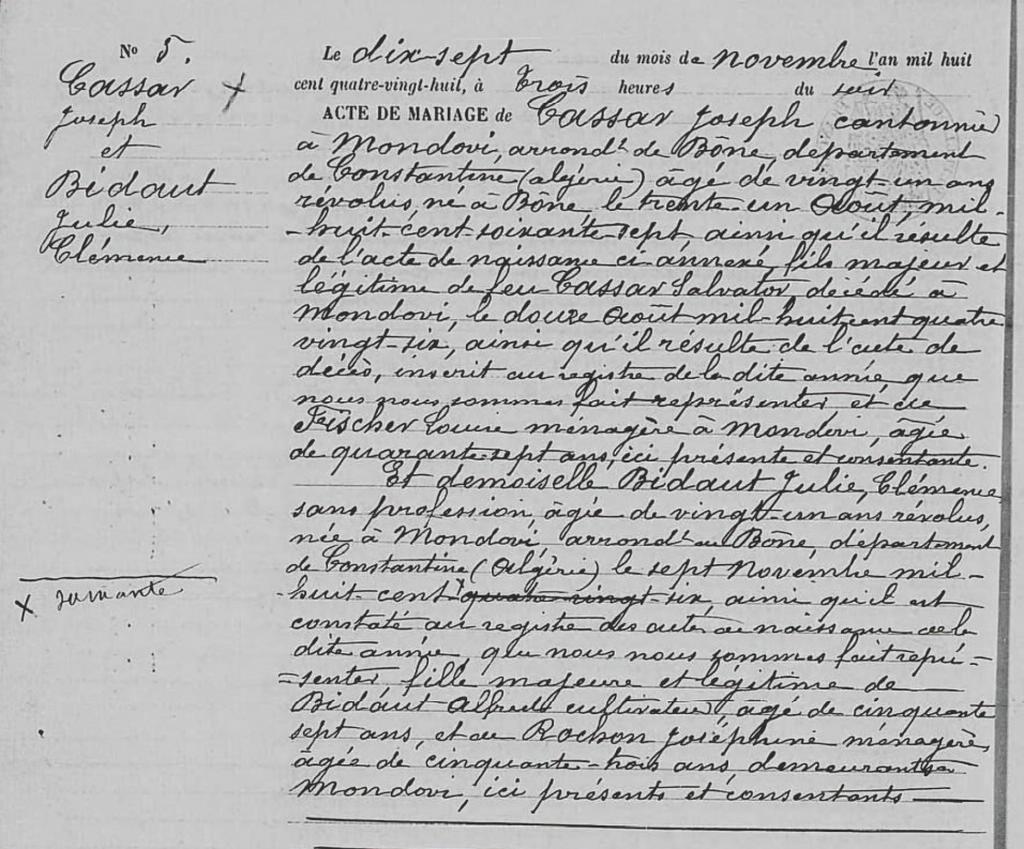 N° 5.
Cassar X
Joseph
et
Bidaut
Julie,
Clémence
X soixante
Le dix-sept du mois de novembre l'an mil huit
cent quatre-vingt-huit, à Trois heures du soir
ACTE DE MARIAGE de Cassar Joseph cantonnier
à Mondovi, arrondt de Bône, département
de Constantine (algérie) âgé de vingt un ans
révolus, né à Bône, le trente un Août, mil-
-huit-cent-soixante-sept, ainsi qu'il résulte
de l'acte de naissance ci-annexé, fils majeur et
légitime de feu Cassar Salvator, décédé à
Mondovi, le douze Août mil-huit cent quatre
vingt-six, ainsi qu'il résulte de l'acte de
décès, inscrit au registre de la dite année, que
nous nous sommes fait représenter, et de
Fischer Louise ménagère à Mondovi, âgée
de quarante-sept ans, ici présente et consentante.
Et demoiselle Bidaut Julie, Clémence
sans profession, âgée de vingt-un ans révolus,
née à Mondovi, arrondt de Bône, département
de Constantine (Algérie) le sept Novembre mil-
-huit-cent X quatre-vingt-six, ainsi qu'il est
constaté au registre des actes de naissance de la
dite année, que nous nous sommes fait repré-
=senter, fille majeure et légitime de
Bidaut Alfred cultivateur, âgé de cinquante
sept ans, et de Rochon Joséphine ménagère,
âgée de cinquante-trois ans, demeurants à
Mondovi, ici présents et consentants